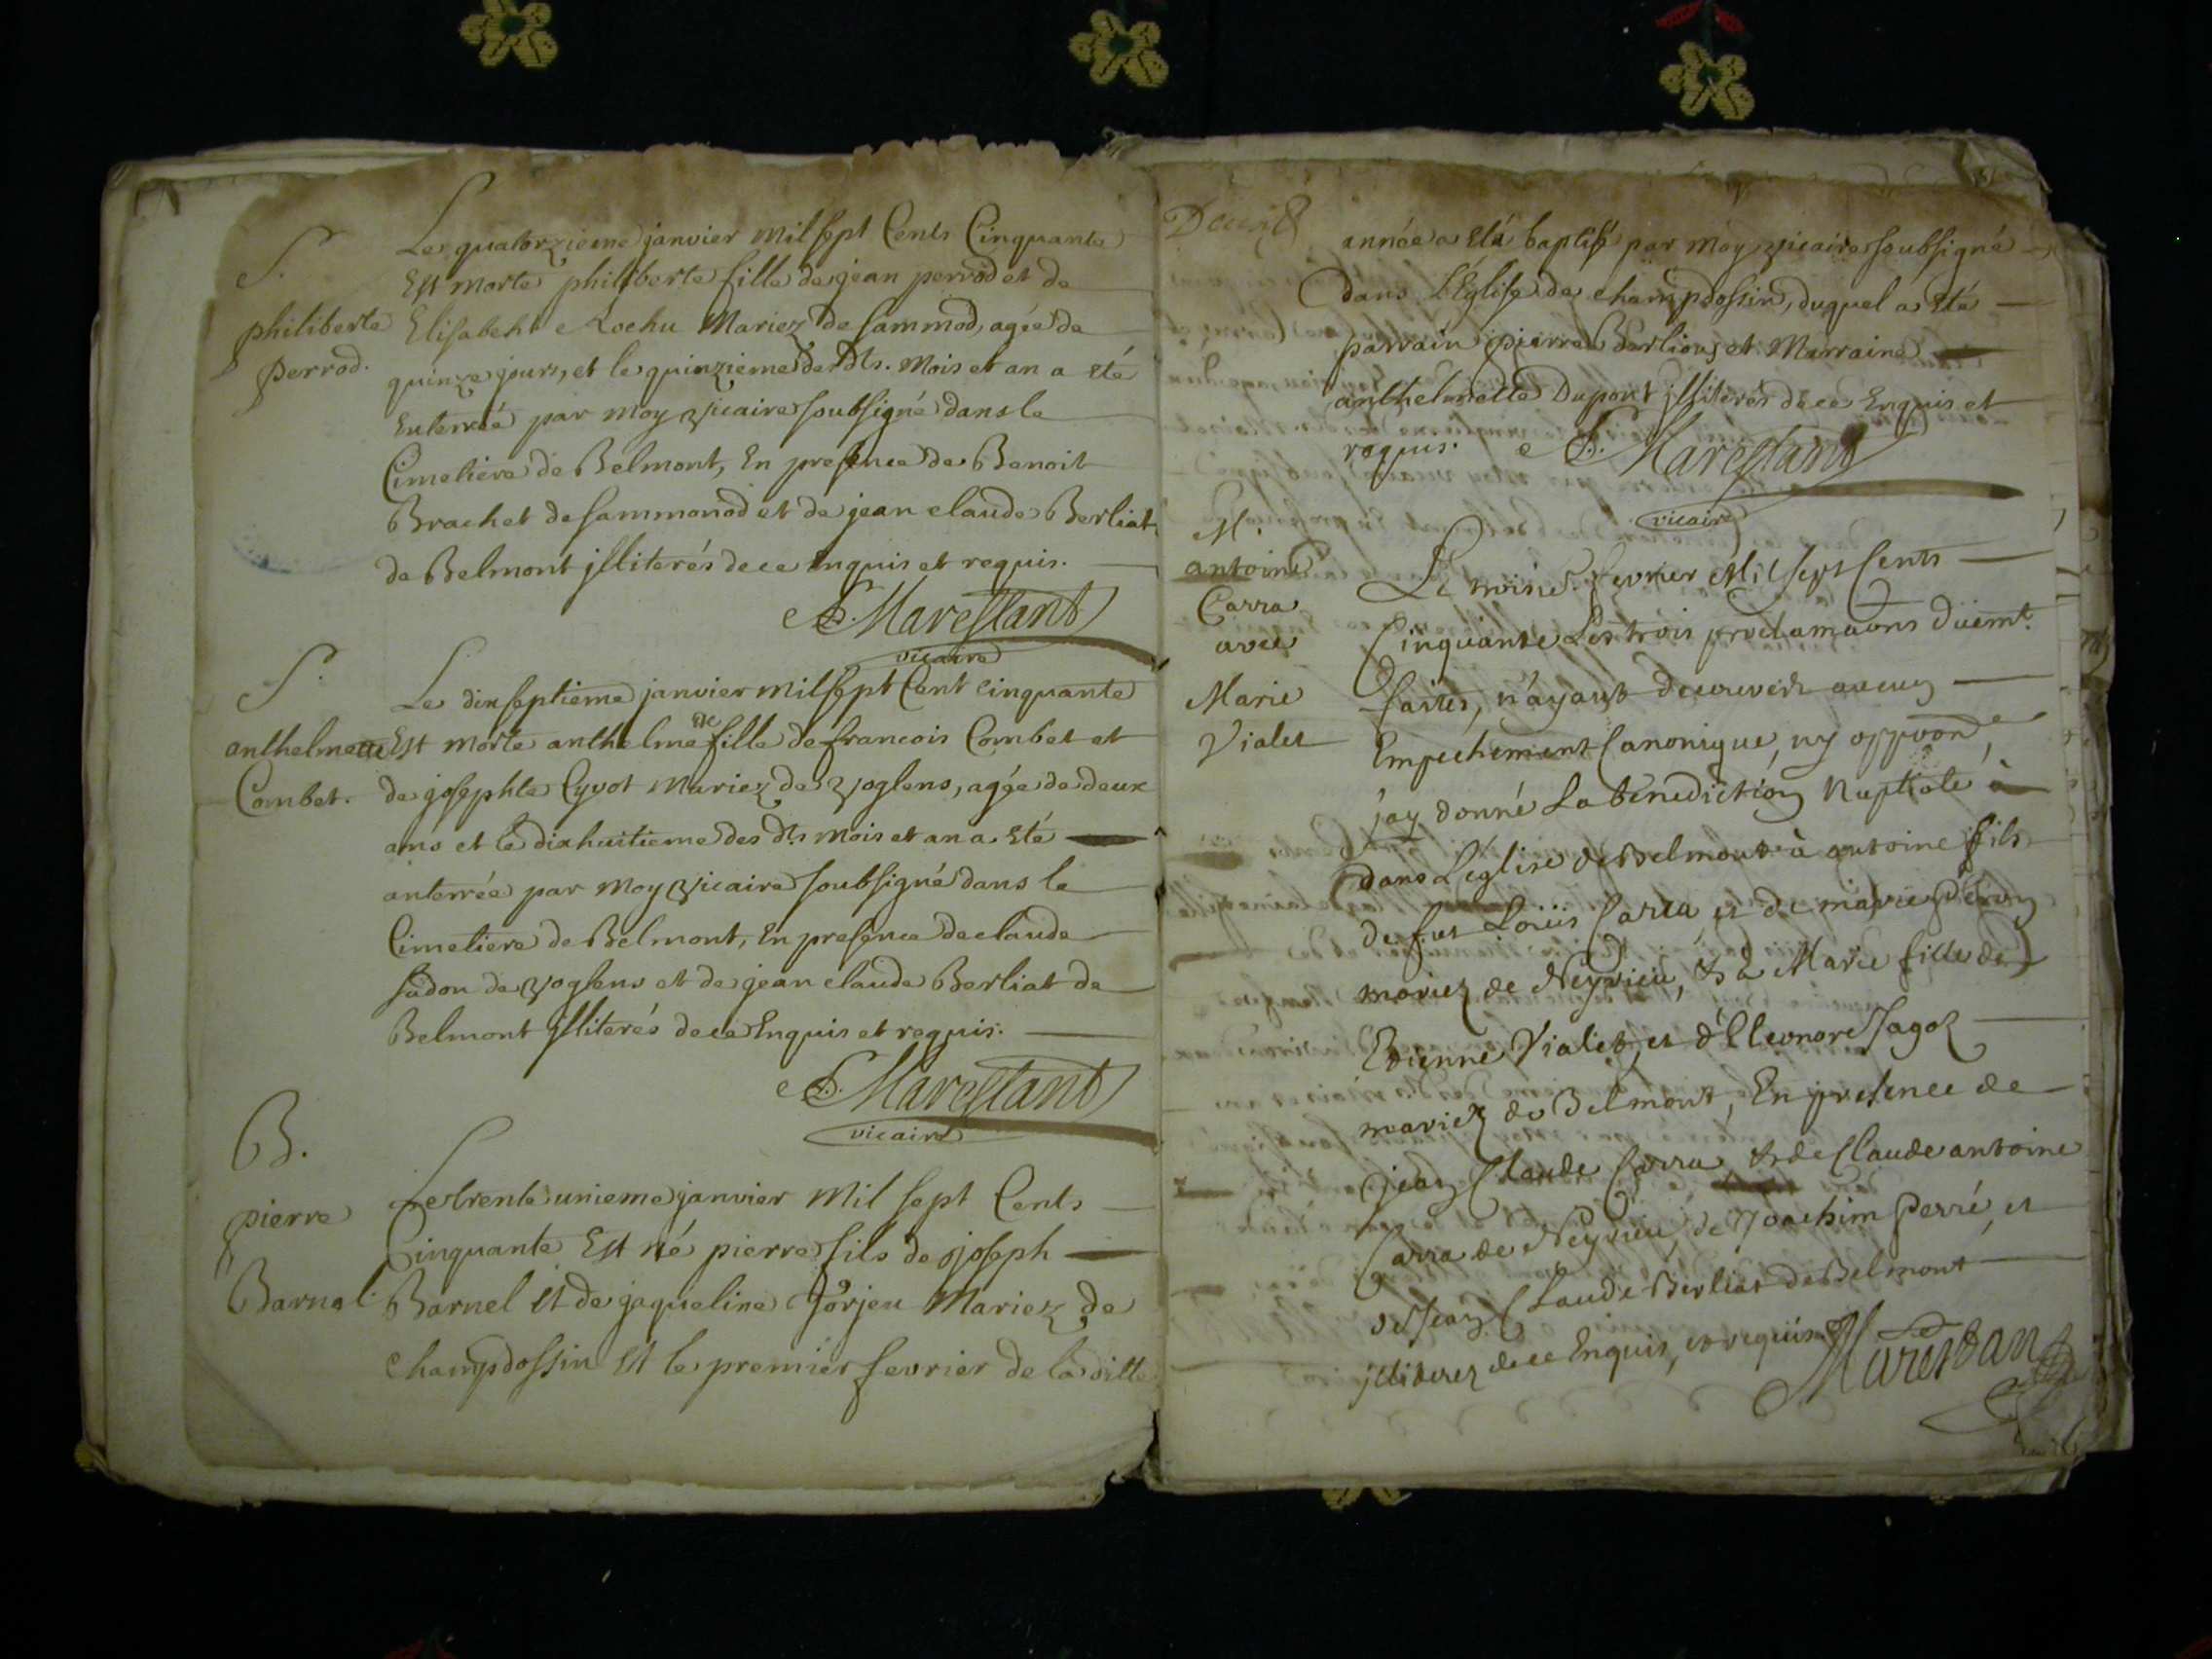 S.
philiberte
perrod.
Le quatorzieme janvier mil sept Cents Cinquante
Est morte philiberte fille de jean perrod et de
Elisabeht Rochu Mariez de sammod, agée de
quinze jours, et le quinzieme des dts. Mois et an a eté
Enterrée par moy vicaire soubsigné dans le
Cimetiere de Belmont, En presence de Benoit
Brachet de sammonod et de jean claude Berliat
de Belmont jlliterés de ce Enquis et requis.
Marestant
vicaire
S.
anthelmette
Combet.
Le dix septieme janvier mil sept Cent cinquante
Est morte anthelmette fille de francois Combet et
de josephte Cyvot Mariez de voglens, agée de deux
ans et le dixhuitieme des dts mois et an a eté
anterrée par moy vicaire soubsigné dans le
Cimetiere de Belmont, En presence de claude
sudon de voglens et de jean claude Berliat de
Belmont jlliterés de ce Enquis et requis.
Marestant
vicaire
B.
pierre
Barnel
Le trente unieme janvier Mil sept Cents
Cinquante Est né pierre fils de joseph
Barnel Et de jaqueline Gorjeu Mariez de
champdossin Et le premier fevrier de la ditte
année a eté baptisé par moy vicaire soubsigné
dans l'Eglise de champdossin, duquel a eté
parrain pierre Berlioz et Marraine
anthelmette Dupont jlliterés de ce Enquis et
requis. Marestant
vicaire
M.
antoine
Carra
avec
Marie
Vialet
Le troise. fevrier Mil sept Cents
Cinquante Les trois proclamaons düemt.
faites, n'ayant decouvert aucun
Empechement Canonique, ny oppoon,
j'ay donné La bénediction Nuptiale à
dans L'eglise de Belmont à antoine fils
de fut Loüis Carra, et de marie
mariez de Neyrieu, & à Marie fille de
Etienne Vialet, et d'Eleonore Jagoz
mariez de Belmont, En presence de
jean Claude Carra, & de Claude antoine
Carra de Neyrieu, de Joachim Perré, et
de Jean Claude Berliat de Belmont
jlliterez de ce Enquis, et requis. Marestan